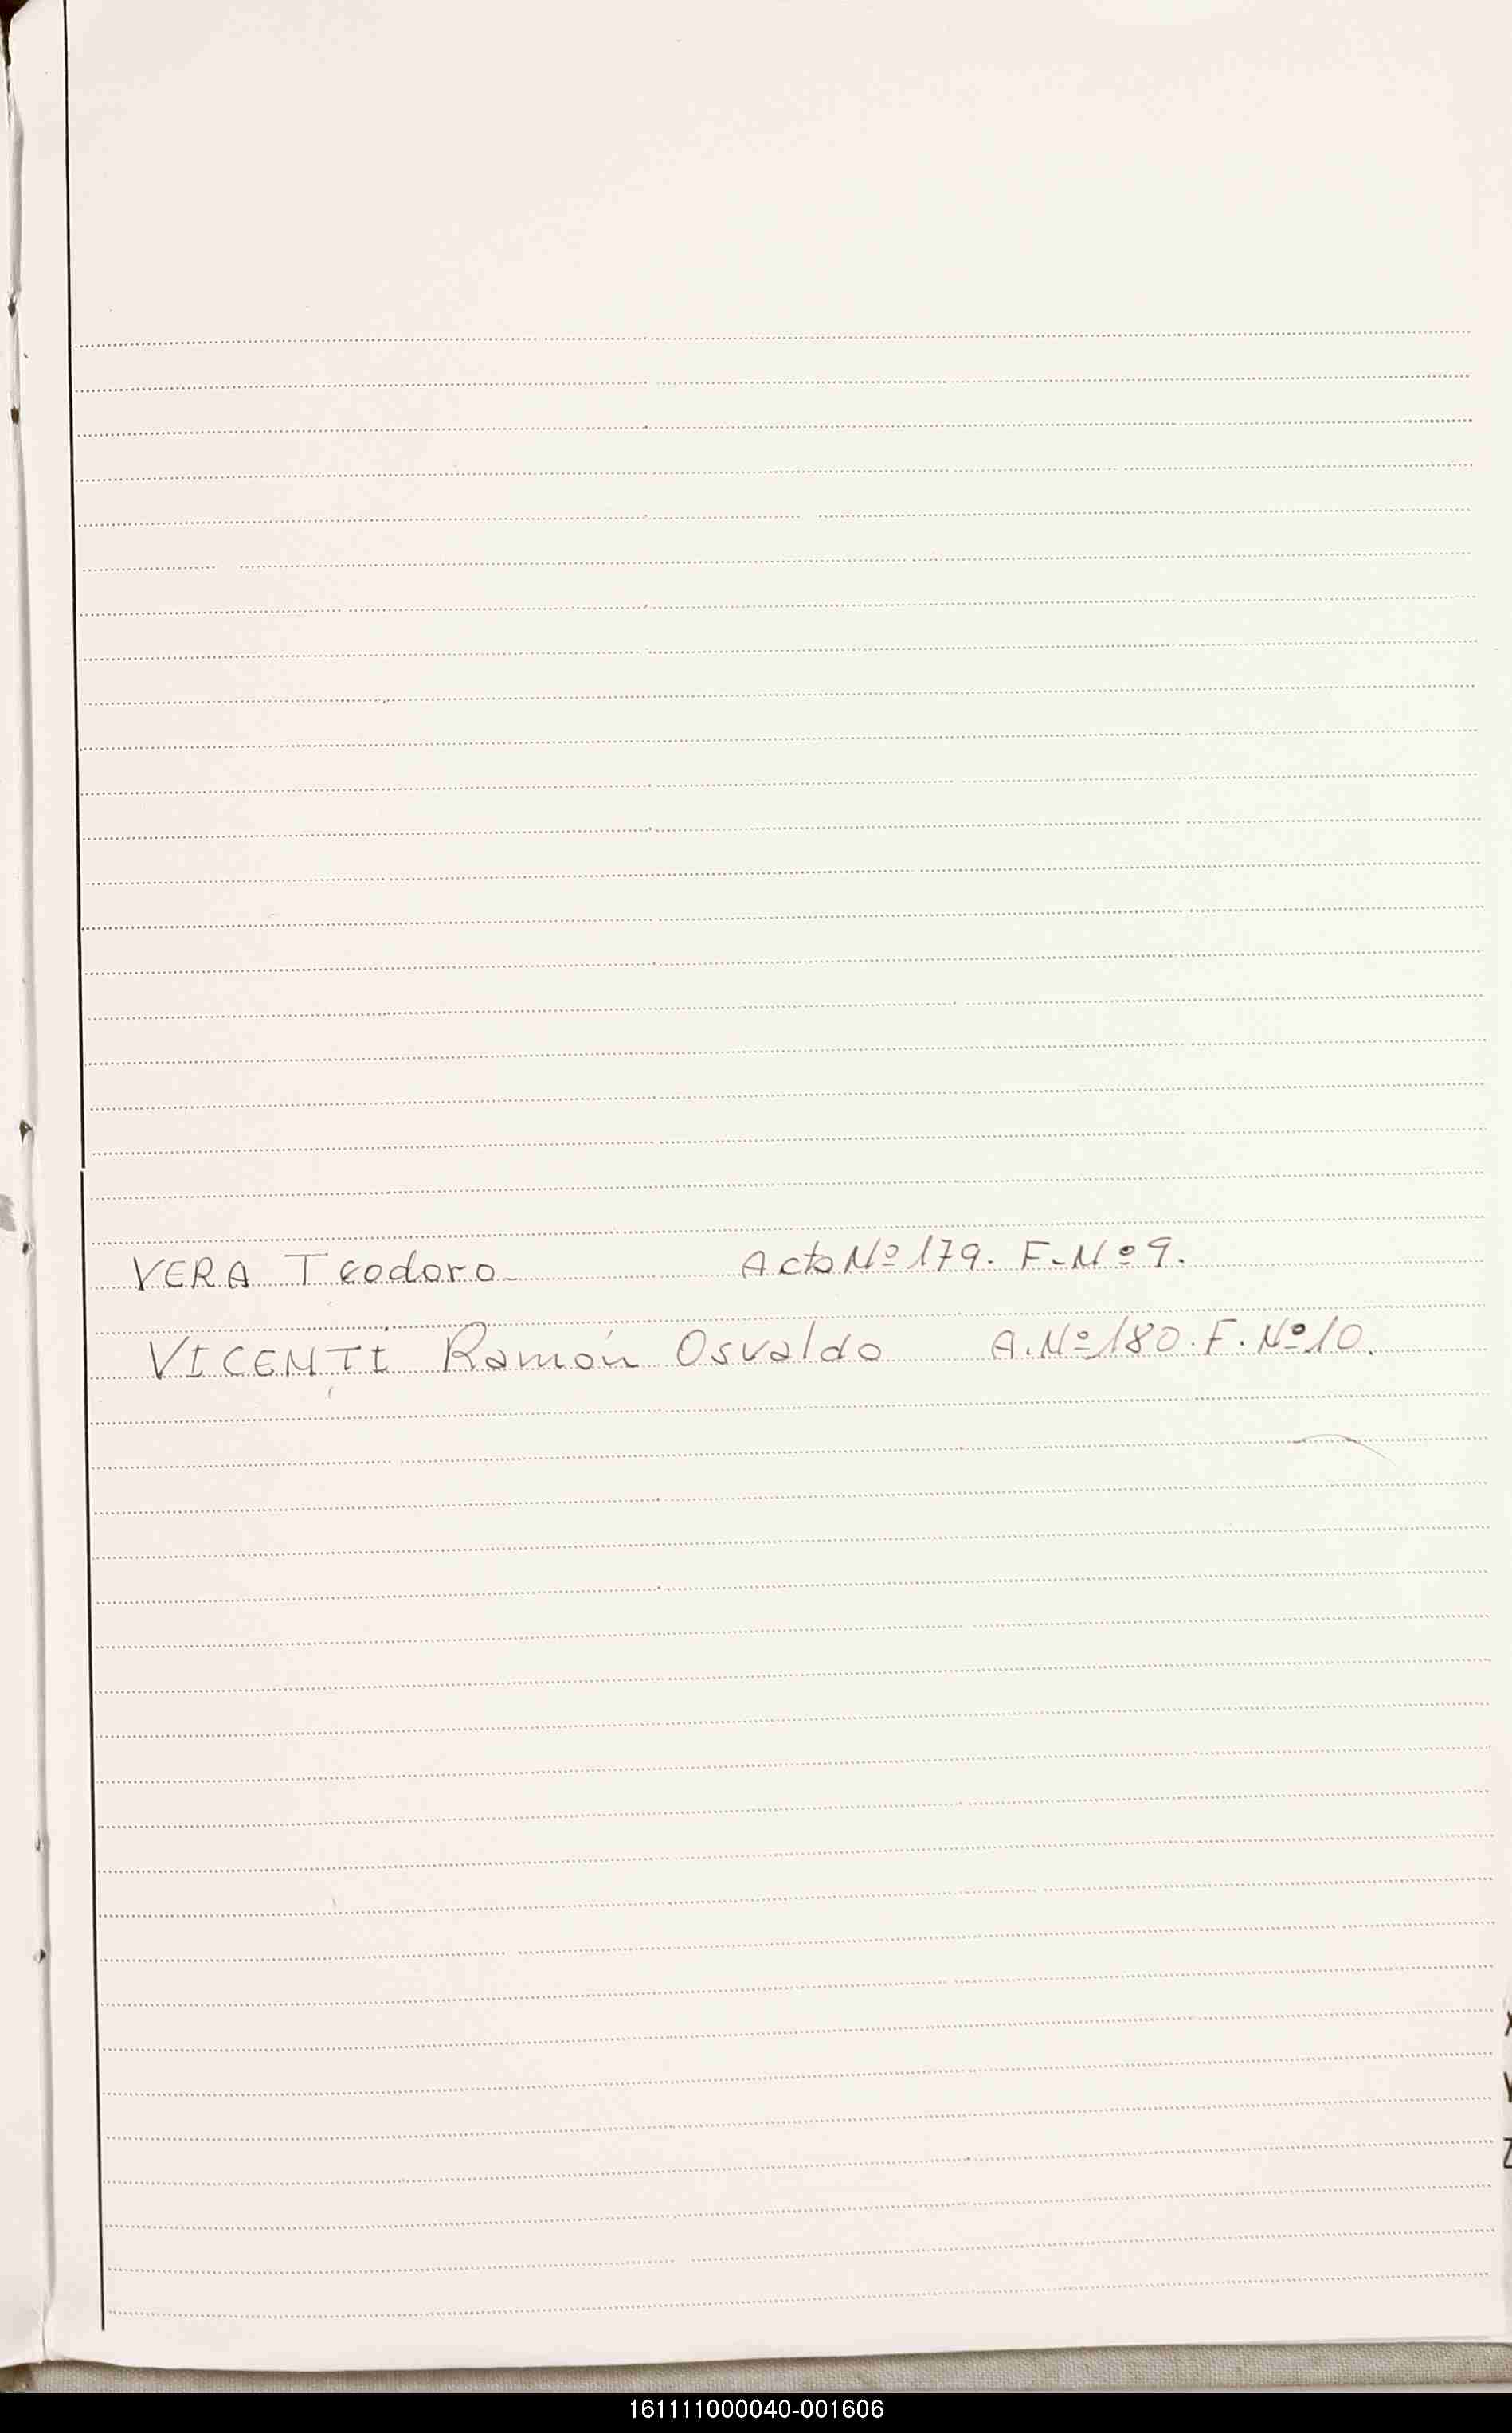 VERA Teodoro Acta Nº 179. F-Nº 9.
VICENTI Ramón Osvaldo A. Nº 180. F. Nº 10.
X
Y
Z
161111000040-001606